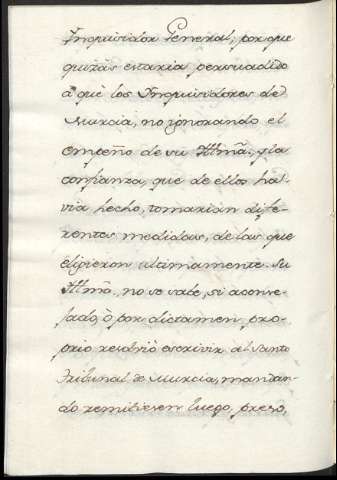 Inquisidor General, por que
quizás estaria persuadido
â què los Inquisidores de
Murcia, no ignorando el
empeño de su Illmã. y la
confianza, que de ellos ha-
via hecho, tomarian dife-
rentes medidas, de las que
eligieron ultimamente. Su
Illmã. no se sabe, si aconse-
jado, ò por dictamen pro-
prio resolviò escrivir al Santo
Tribunal de Murcia, mandan-
do remitiesen luego, preso,